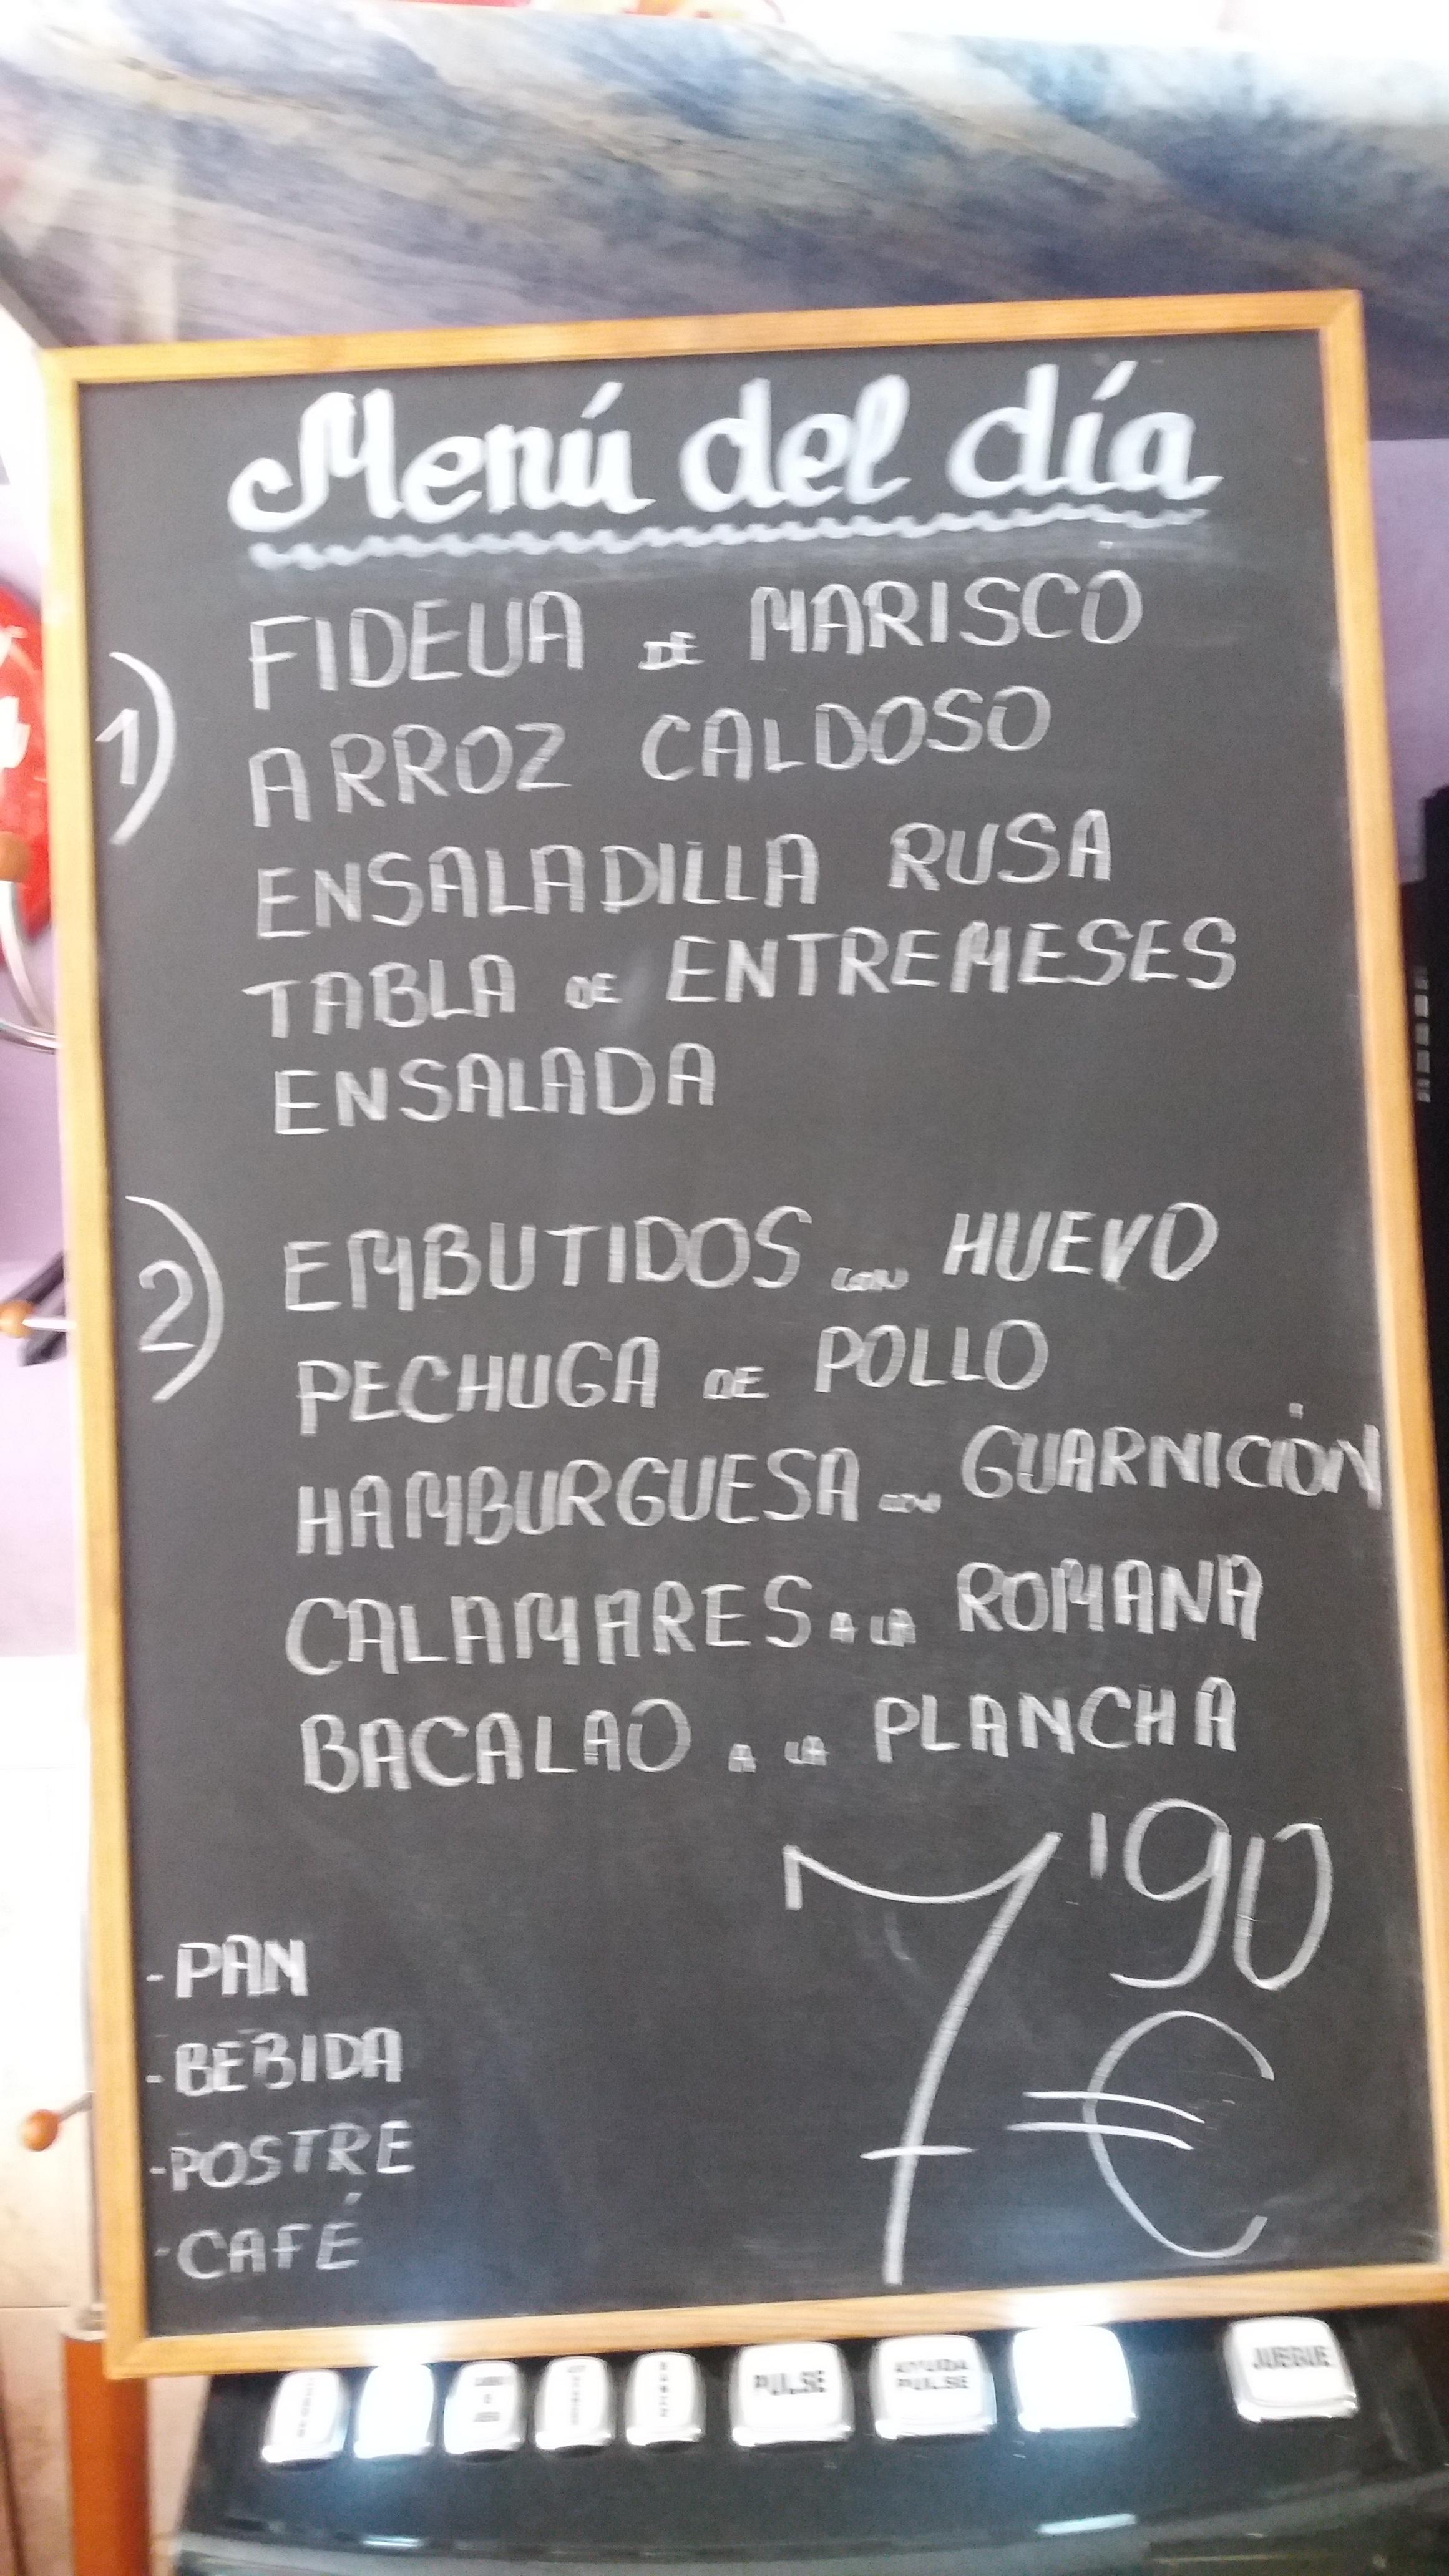 Menú del día
1) FIDEUA DE MARISCO
ARROZ CALDOSO
ENSALADILLA RUSA
TABLA DE ENTREMESES
ENSALADA
2) EMBUTIDOS CON HUEVO
PECHUGA DE POLLO
HAMBURGUESA CON GUARNICIÓN
CALAMARES A LA ROMANA
BACALAO A LA PLANCHA
7'90 €
- PAN
- BEBIDA
- POSTRE
- CAFÉ
PULSE
AYUDA PULSE
JUEGUE